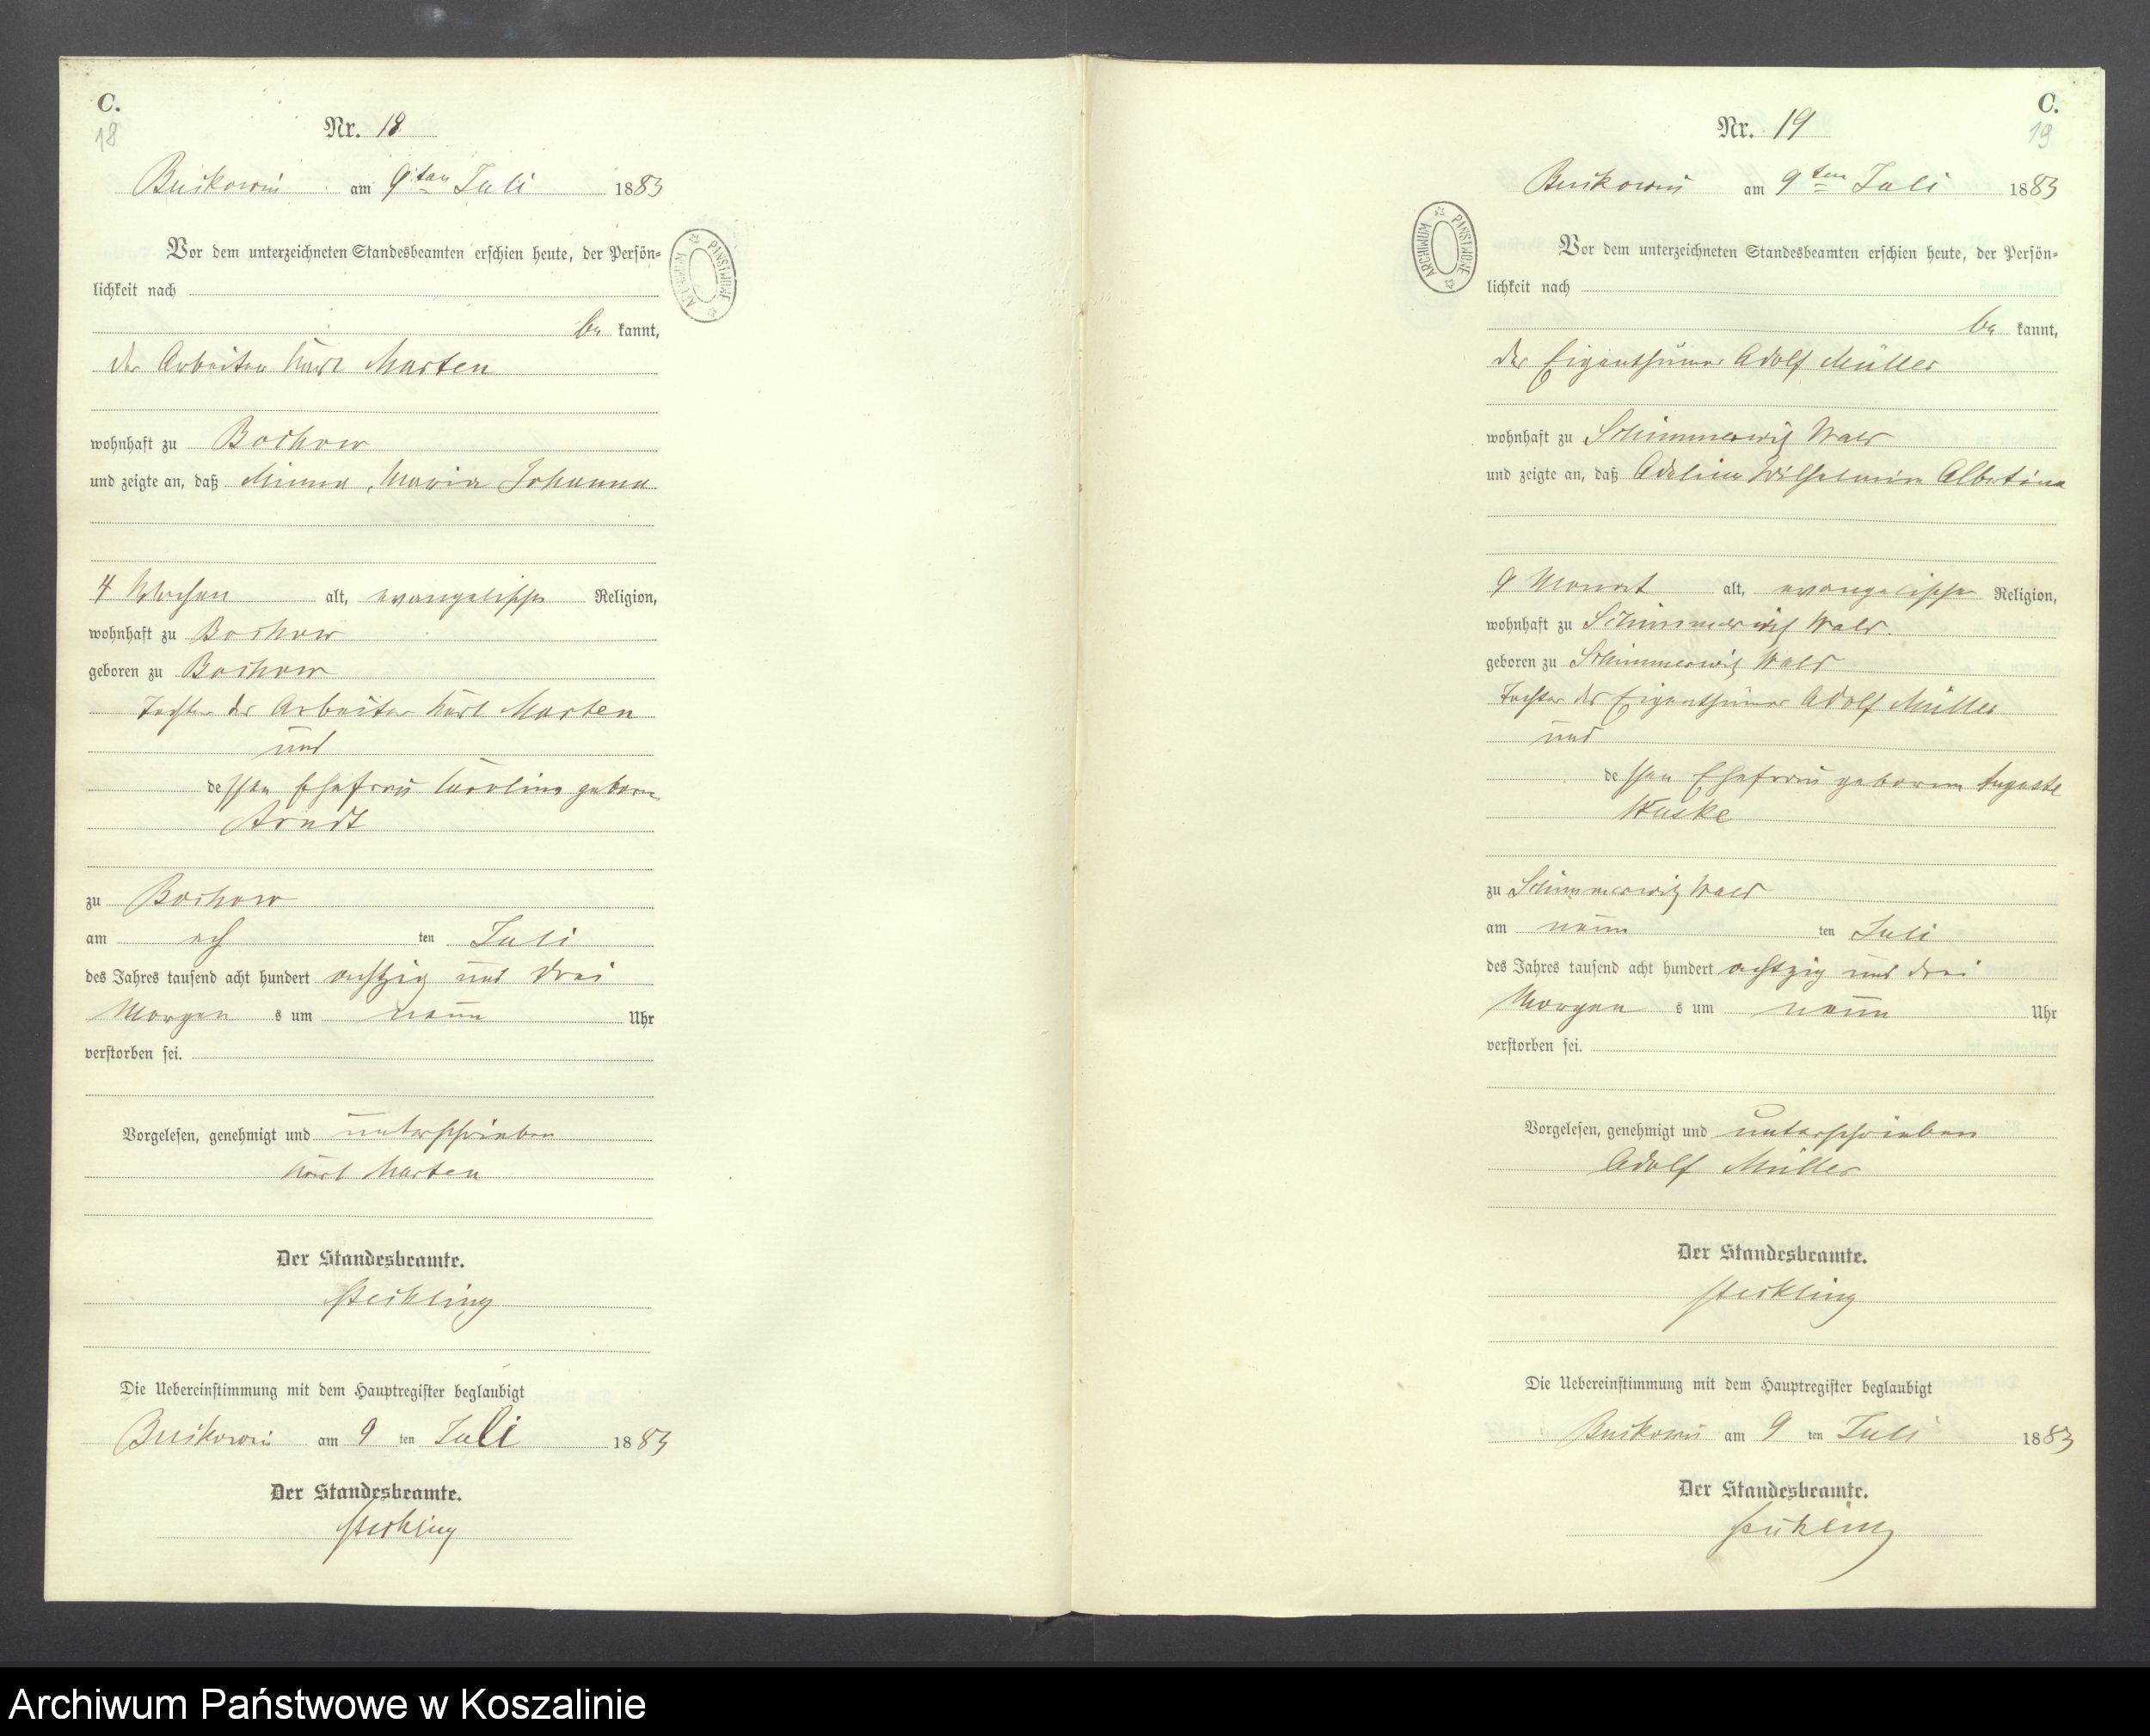 C.
18
Nr. 18
Buckowin am 9ten Juli 1883
Vor dem unterzeichneten Standesbeamten erschien heute, der Persön-
lichkeit nach
be kannt,
der Arbeiter Karl Marten
wohnhaft zu Bochow
und zeigte an, daß Minna, Maria Johanna
4 Wochen alt, evangelischer Religion,
wohnhaft zu Bochow
geboren zu Bochow
Tochter des Arbeiter Karl Marten
und
dessen Ehefrau Caroline geborne
Arndt
zu Bochow
am ach ten Juli
des Jahres tausend acht hundert achtzig und drei
Morgen s um neun Uhr
verstorben sei.
Vorgelesen, genehmigt und unterschrieben
Karl Marten
Der Standesbeamte.
Steckling
Die Uebereinstimmung mit dem Hauptregister beglaubigt
Buckowin am 9 ten Juli 1883
Der Standesbeamte.
Steckling
ARCHIWUM PAŃSTWOWE
C.
19
Nr. 19
Buckowin am 9ten Juli 1883
Vor dem unterzeichneten Standesbeamten erschien heute, der Persön-
lichkeit nach
be kannt,
der Eigenthümer Adolf Müller
wohnhaft zu Schimmerwitz Wald
und zeigte an, daß Adeline Wilhelmine Albertine
9 Monat alt, evangelischer Religion,
wohnhaft zu Schimmerwitz Wald.
geboren zu Schimmerwitz Wald
Tochter des Eigenthümer Adolf Müller
und
dessen Ehefrau geborene Auguste
Kuske
zu Schimmerwitz Wald
am neun ten Juli
des Jahres tausend acht hundert achtzig und drei
Morgen s um neun Uhr
verstorben sei.
Vorgelesen, genehmigt und unterschrieben
Adolf Müller
Der Standesbeamte.
Steckling
Die Uebereinstimmung mit dem Hauptregister beglaubigt
Buckowin am 9 ten Juli 1883
Der Standesbeamte.
Steckling
ARCHIWUM PAŃSTWOWE
Archiwum Państwowe w Koszalinie